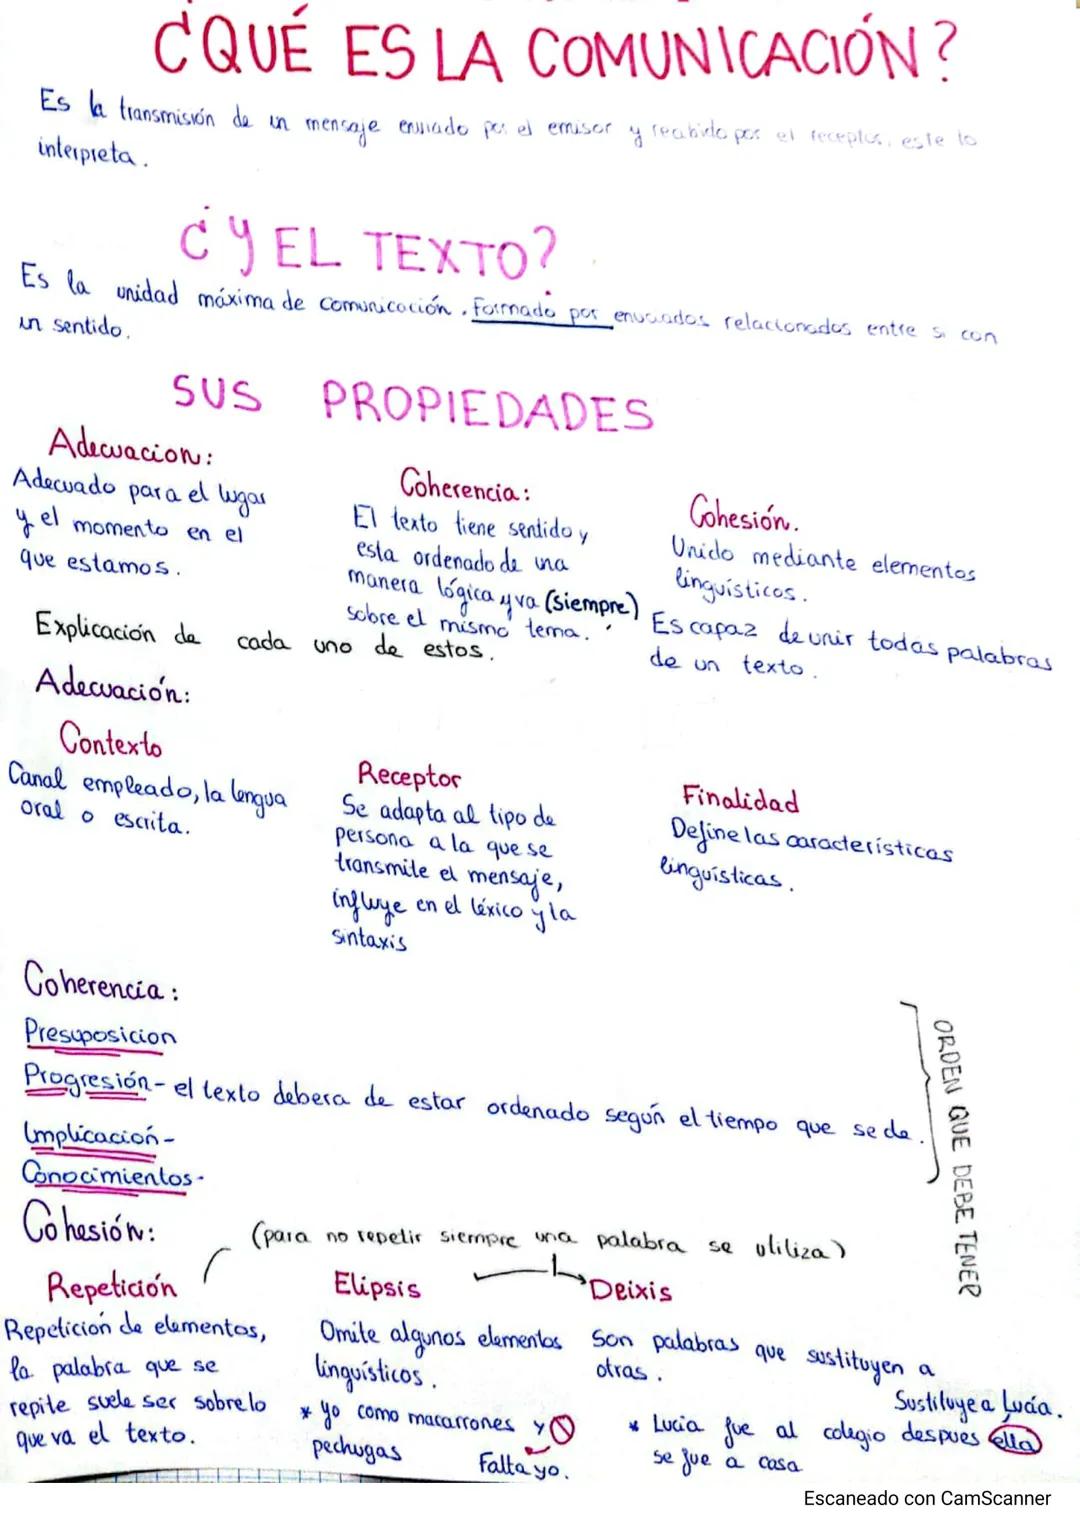 ¿QUÉ ES LA COMUNICACIÓN?
Es la transmisión de un mensaje enviado por el emisor y recibido por el receptor, este lo
interpreta.
¿Y EL TEXTO?
Es la unidad máxima de comunicación. Formado por enunciados relacionados entre si con
un sentido.
SUS PROPIEDADES
Adecuacion:
Adecuado para el lugar
y el momento en el
que estamos.
Coherencia:
El texto tiene sentido y
esta ordenado de una
manera lógica y va (siempre)
sobre el mismo tema.
Cohesión.
Unido mediante elementos
linguísticos.
Es capaz de unir todas palabras
de un texto.
Explicación de cada uno de estos.
Adecuación:
Contexto
Canal empleado, la lengua
oral o escrita.
Receptor
Se adapta al tipo de
persona a la que se
transmite el mensaje,
influye en el léxico y la
sintaxis
Finalidad
Define las características
linguísticas.
Coherencia:
Presuposicion
Progresión- el texto debera de estar ordenado según el tiempo que se de.
Implicación-
Conocimientos-
ORDEN QUE DEBE TENER
Cohesión:
(para no repetir siempre una palabra se utiliza)
Repetición
Repetición de elementos,
la palabra que se
repite suele ser sobre lo
que va el texto.
Elipsis
Omite algunos elementos
linguísticos.
* yo como macarrones y
pechugas
Falta yo.
Deixis
Son palabras que sustituyen a
otras.
Sustituye a Lucía.
* Lucia fue al colegio despues ella
se fue a casa
Escaneado con CamScanner